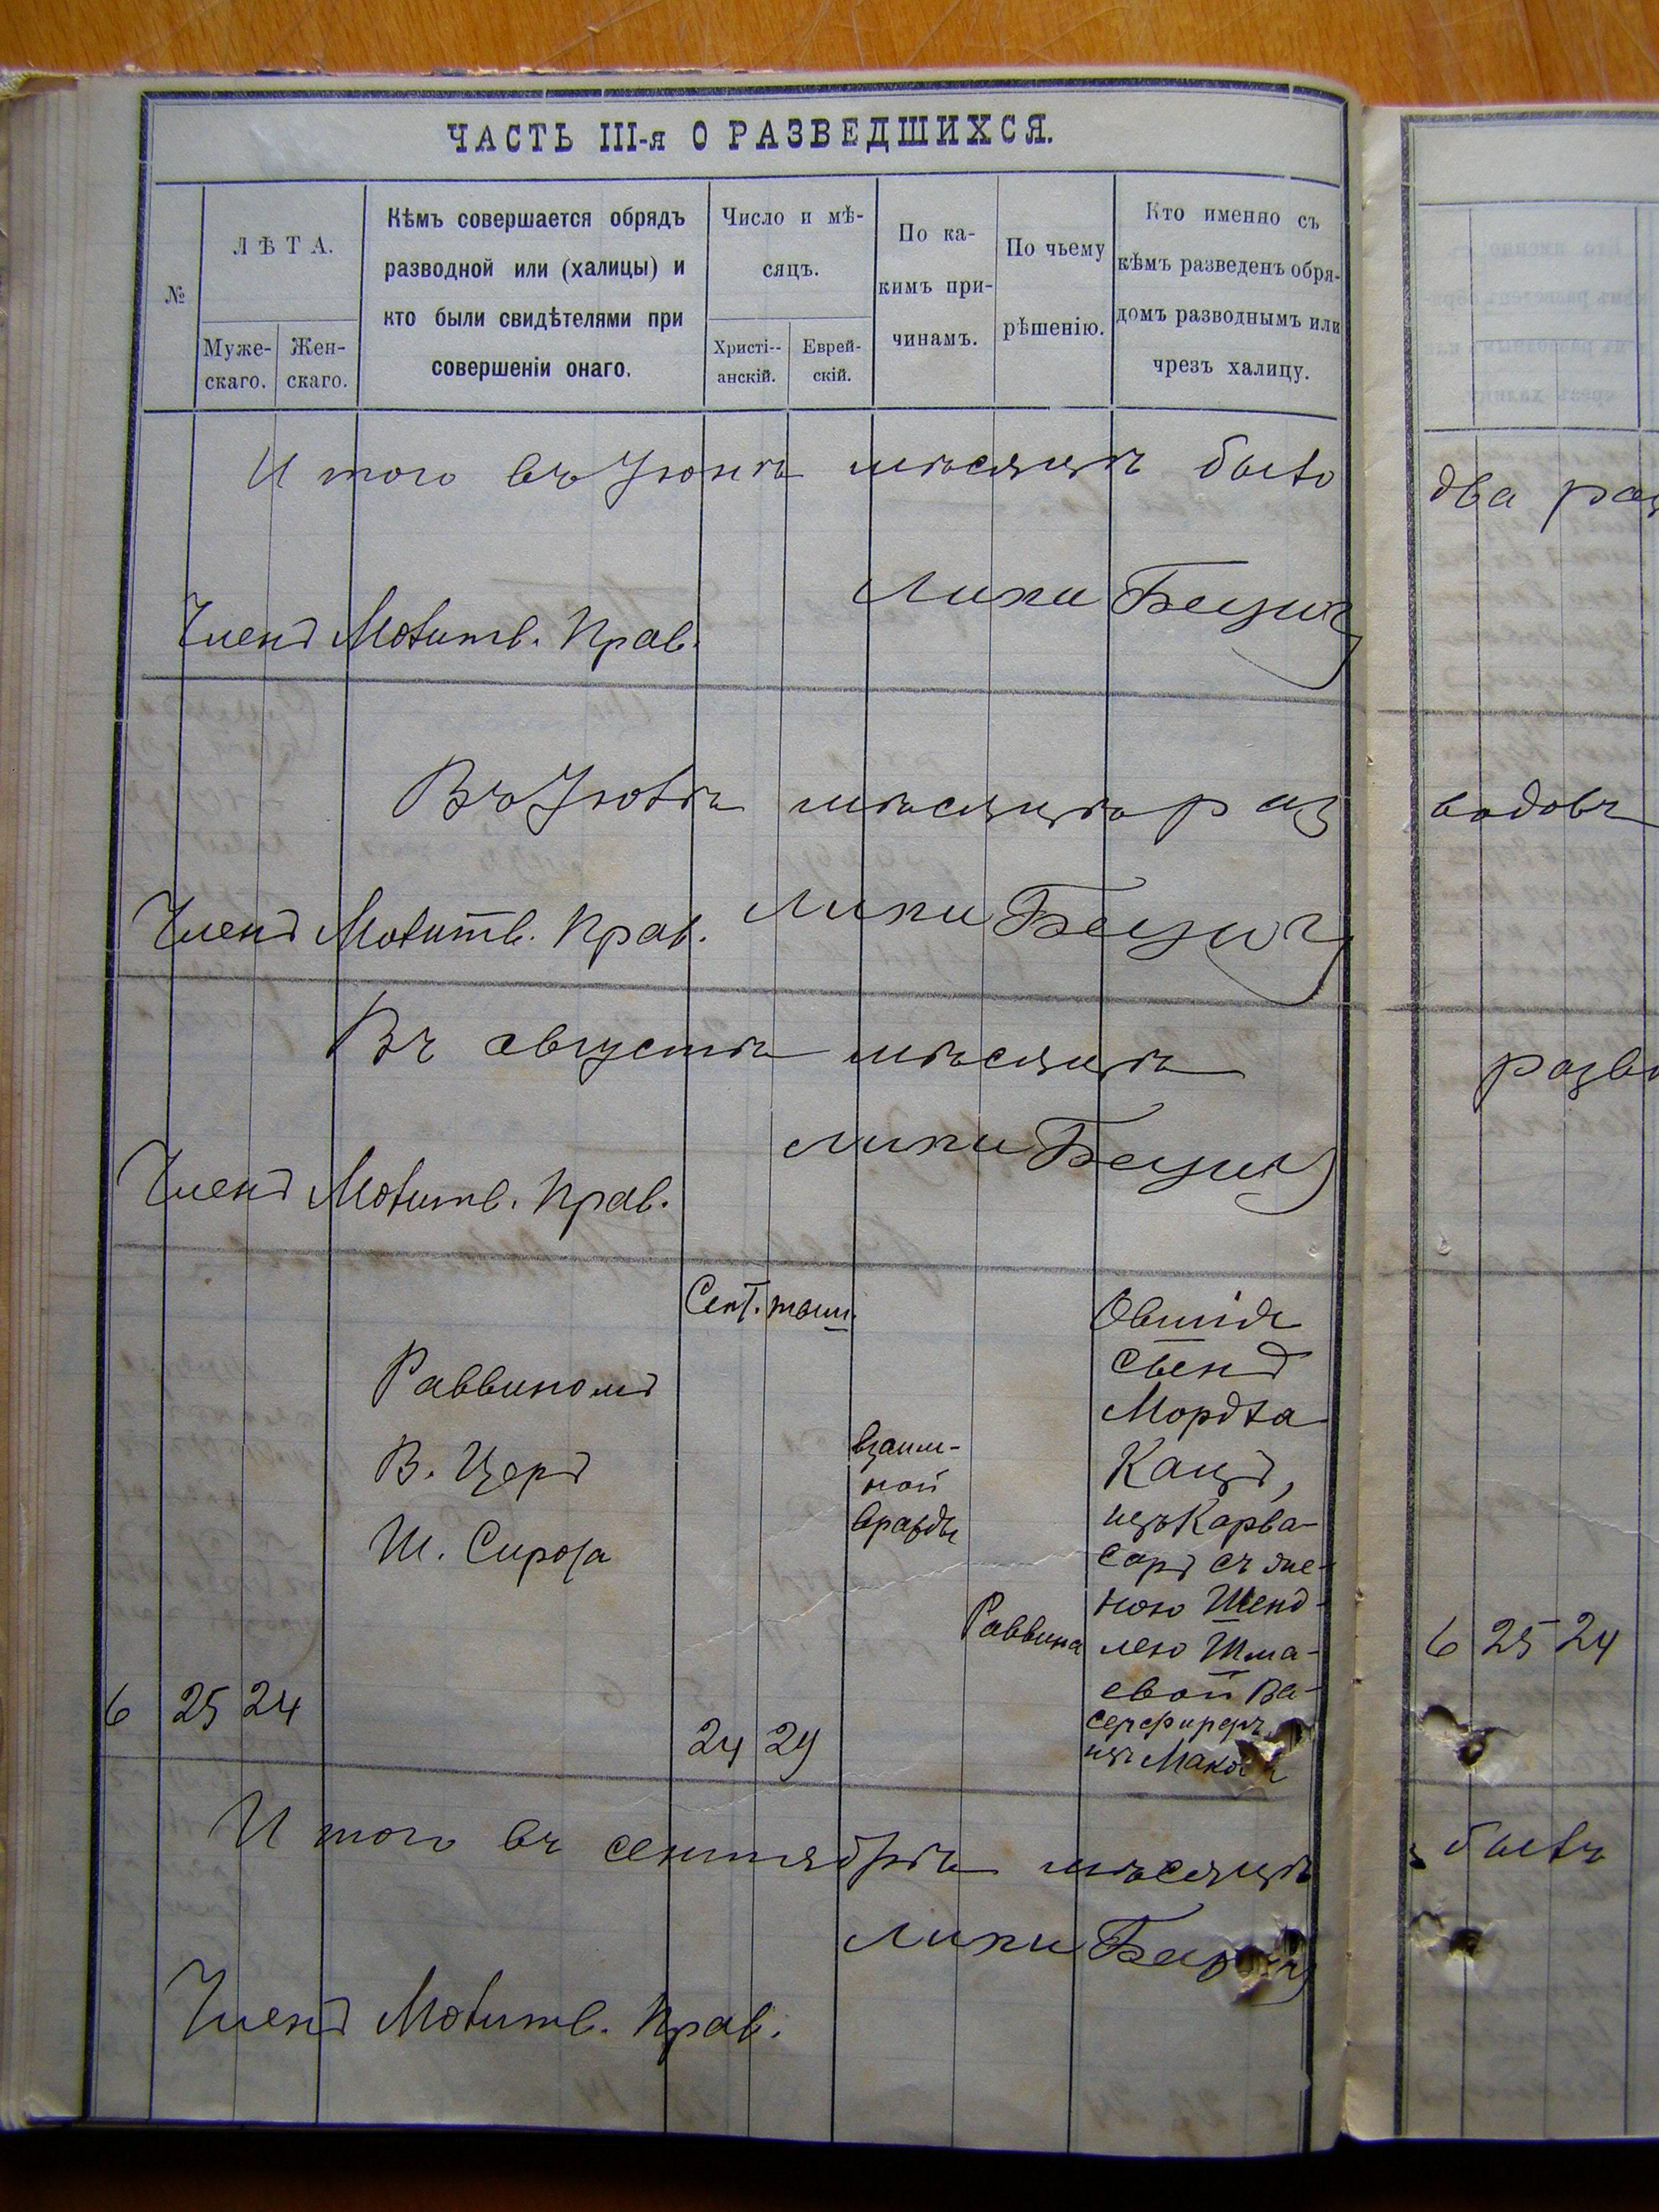 ЧАСТЬ III-я О РАЗВЕДШИХСЯ.
№
ЛѢТА.
Муже-
скаго.
Жен-
скаго.
Кѣмъ совершается обрядъ
разводной или (халицы) и
кто были свидѣтелями при
совершеніи онаго.
Число и мѣ-
сяцъ.
Христі-
анскій.
Еврей-
скій.
По ка-
кимъ при-
чинамъ.
По чьему
рѣшенію.
Кто именно съ
кѣмъ разведенъ обря-
домъ разводнымъ или
чрезъ халицу.
И того въ Іюнѣ мѣсяцѣ было
два раз
Липи
Членъ Молитв. Прав.
Въ Іюлѣ мѣсяцѣ раз
водовъ
Липи
Членъ Молитв. Прав.
Въ августѣ мѣсяцѣ
разво
Липи
Членъ Молитв. Прав.
6
25
24
Раввиномъ
В. Церъ
Ш. Сирота
Сент.
24
тиш.
29
взаим-
ной
вражды
Раввина
Овшій
сынъ
Мордка
Кацъ,
изъ Карва-
саръ съ же-
ною Шенд-
лею Шма-
евой Ва-
серфиреръ
изъ Маков
6 25 24
И того въ сентябрѣ мѣсяцѣ
былъ
Липи
Членъ Молитв. Прав.